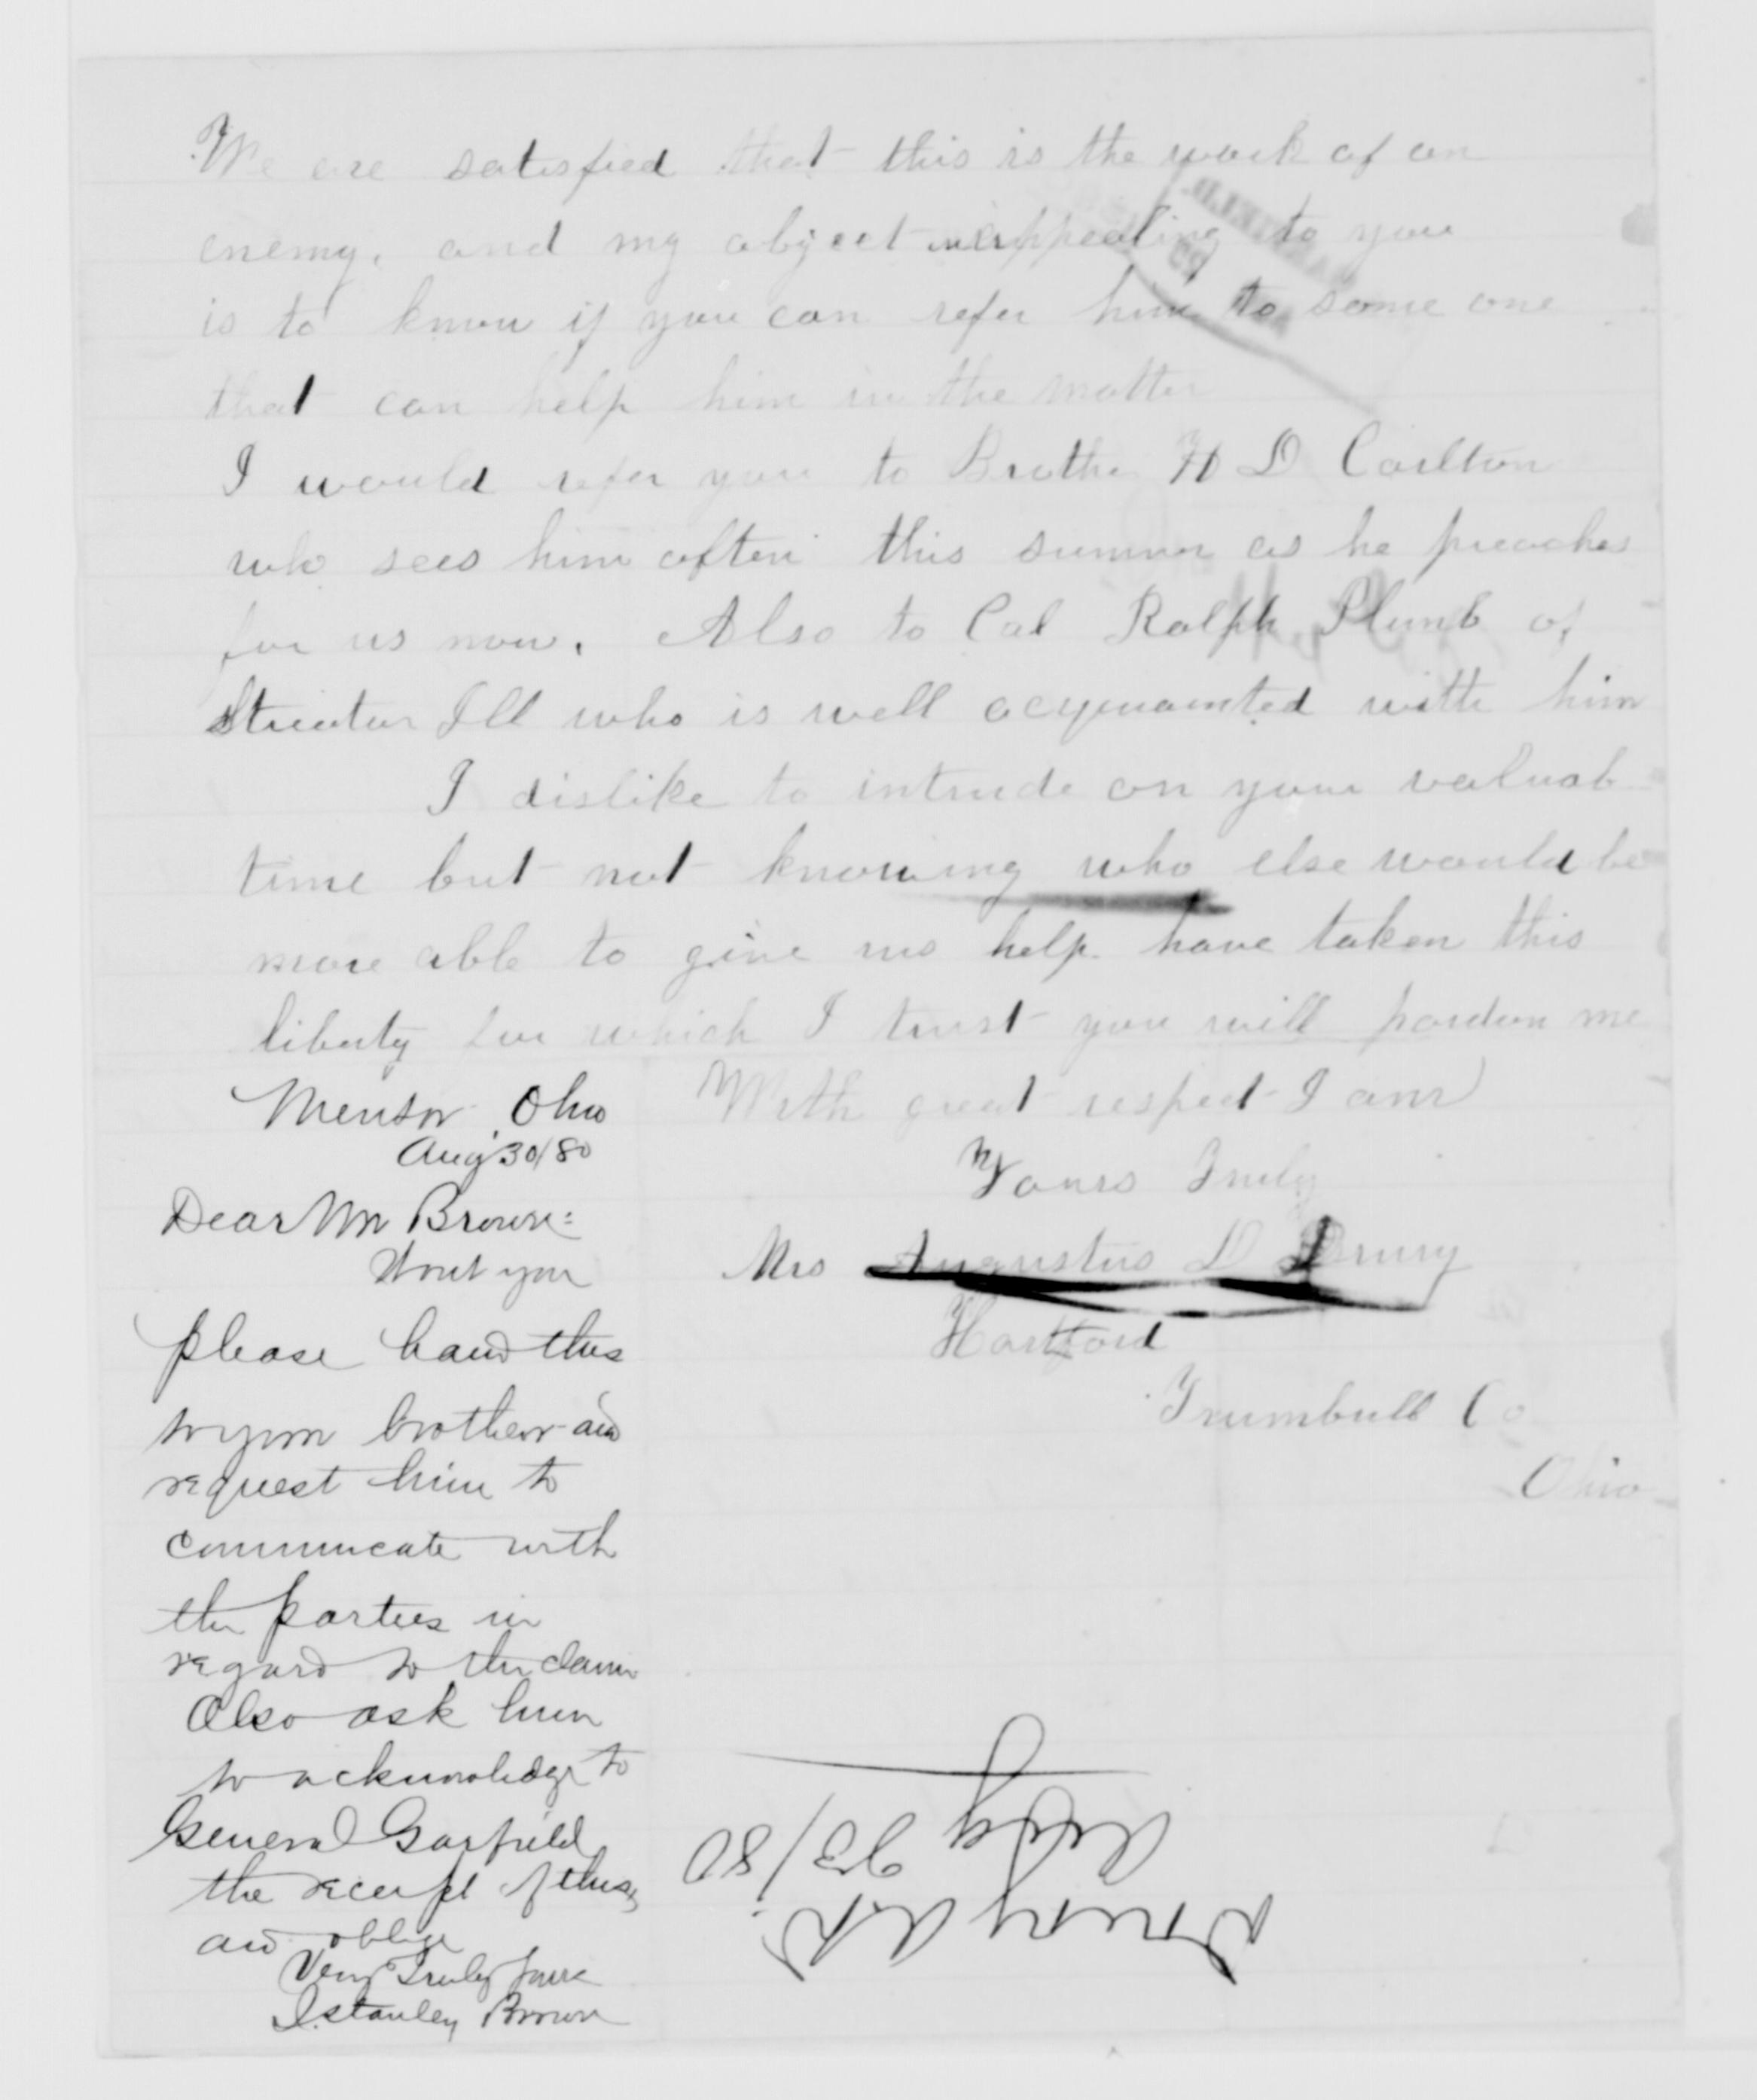 We are satisfied that this is the work of an
enemy, and my object in appealing to you
is to know if you can refer him to some one
that can help him in the matter
I would refer you to Brother H D Carlton
who sees him often this summer as he preaches
for us now. Also to Col Ralph Plumb of
Streator Ill who is well acquainted with him
I dislike to intrude on your valuabl
time but not knowing who else would be
more able to give us help have taken this
liberty for which I trust you will pardon me
With great respect I am
Yours Truly
Mrs Augustus D Drury
Hartford
Trumbull Co
Ohio
Mentor Ohio
Aug 30/80
Dear Mr Brown:
Wont you
please hand this
to your brother and
request him to
communicate with
the parties in
regard to the claim
Also ask him
to acknowledge to
General Garfield
the receipt of this,
and oblige
Very Truly Yours
J. Stanley Brown
Drury A. D.
Aug 23/80